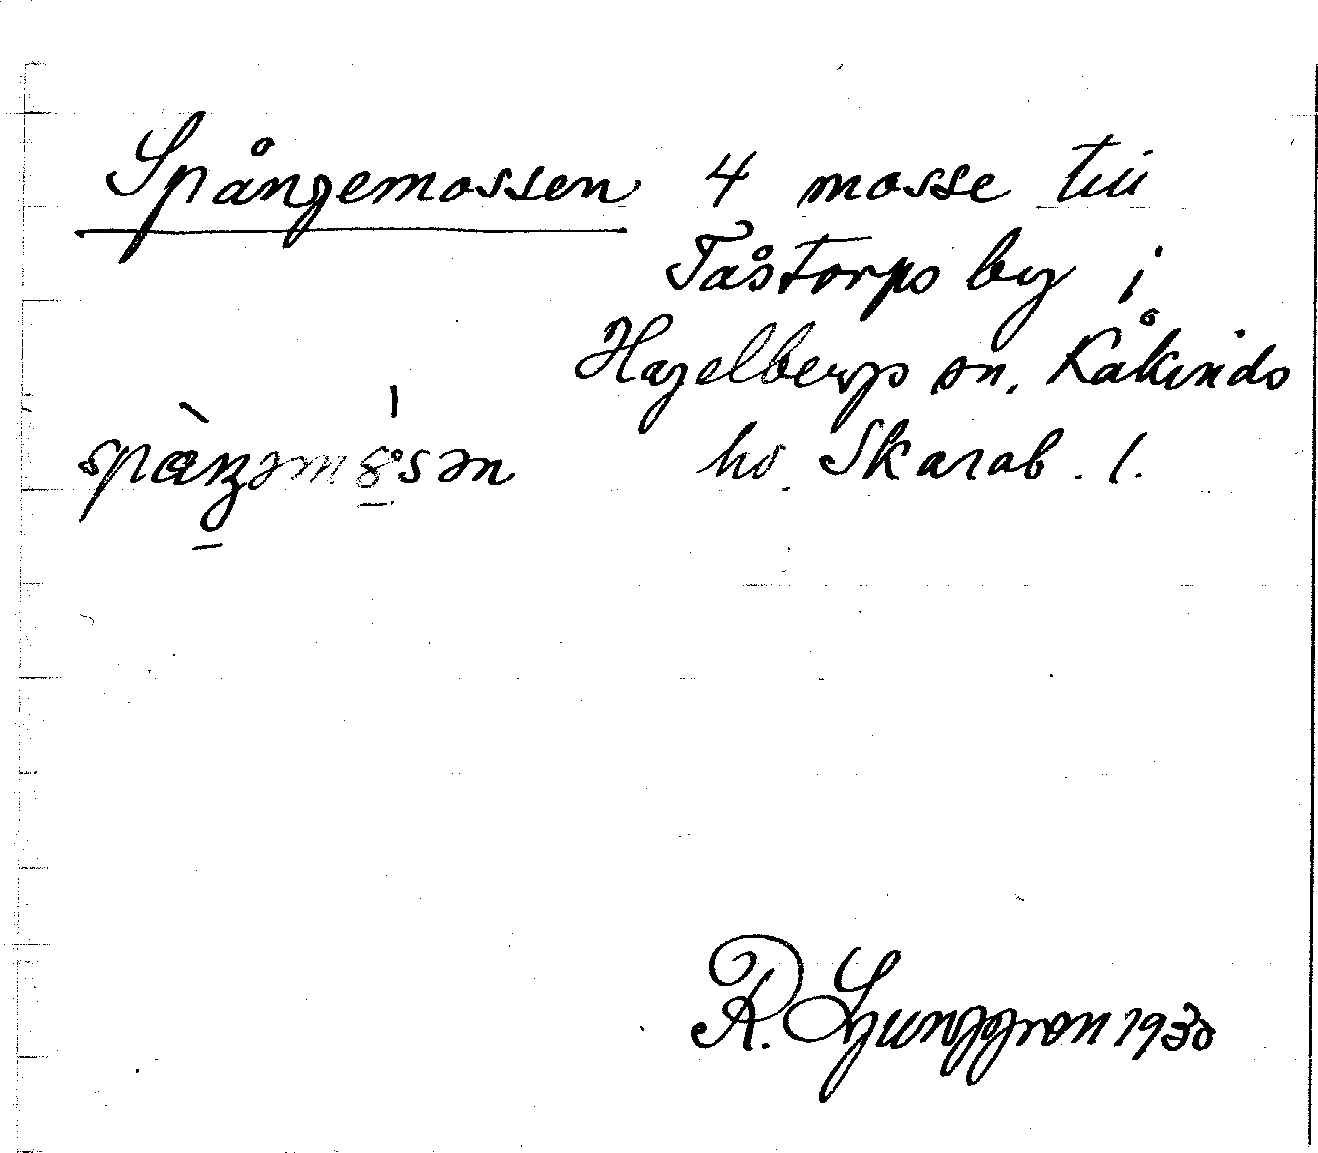 Spångemossen 4 mosse till
Tåstorps by i
Hagelbergs sn. Kåkinds
spàŋəmȯsən hd. Skarab. l.
R. Ljunggren 1930